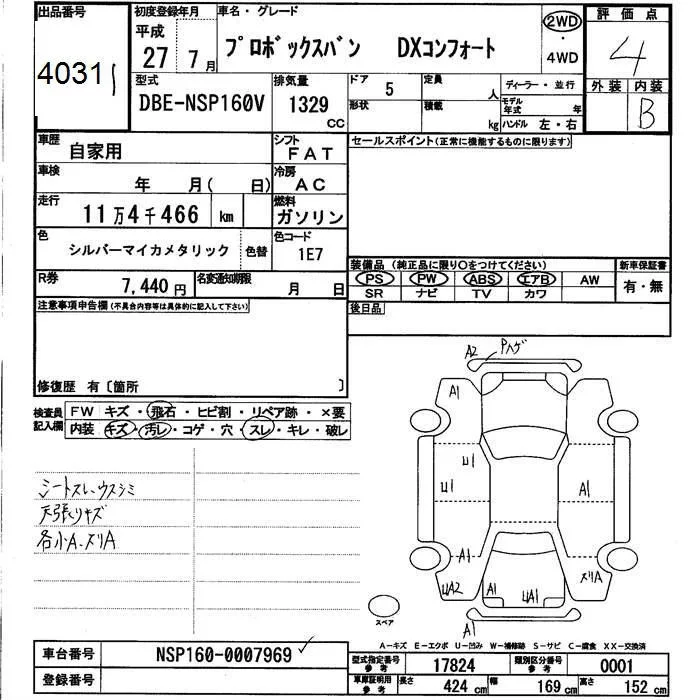 出品番号
40311
初度登録年月
平成
27年 7月
車名・グレード
プロボックスバン DXコンフォート
2WD
・
4WD
評価点
4
外装 内装
B
型式
DBE-NSP160V
排気量
1329
CC
ドア
5
定員
人
形状
積載
kg
ディーラー・並行
モデル年式 年
ハンドル 左・右
車歴
自家用
シフト
FAT
セールスポイント(正常に機能するものに限ります)
車検
年 月( 日)
冷房
AC
走行
11万4千466 km
燃料
ガソリン
色
シルバーマイカメタリック
色替
色コード
1E7
R券
7,440円
名変通知期限
月 日
装備品 (純正品に限り〇をつけてください)
PS PW ABS エアB AW
SR ナビ TV カワ
新車保証書
有・無
後日品
注意事項申告欄(不具合内容等は具体的に記入して下さい)
修復歴 有〔箇所 〕
検査員記入欄
FW キズ・飛石・ヒビ割・リペア跡・×要
内装 キズ・汚レ・コゲ・穴・スレ・キレ・破レ
シートスレ、ウスシミ
天張りキズ
各小A、ヌリA
A2
Pハゲ
A1
U1
U1
A1
A1
UA2
A1
UA1
ヌリA
A1
スペア
A-キズ E-エクボ U-凹み W-補修跡 S-サビ C-腐食 XX-交換済
車台番号
NSP160-0007969
登録番号
型式指定番号 参考
17824
類別区分番号 参考
0001
車庫証明用 参考
長さ 424 cm
幅 169 cm
高さ 152 cm